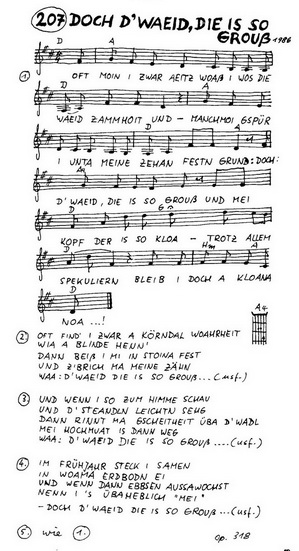 207 DOCH D'WAEID, DIE IS SO
GROUß 1986
D A
① OFT MOIN I ZWAR AEITZ WOAß I WOS DIE
D A
WAEID ZAMMHOIT UND - MANCHMOI GSPÜR
D A
I UNTA MEINE ZEHAN FESTN GRUND: DOCH:
D
D'WAEID, DIE IS SO GROUß UND MEI
D G
KOPF DER IS SO KLOA - TROTZ ALLEM
D Hm A
SPEKULIERN BLEIB I DOCH A KLOANA
D
NOA ...!
A4
② OFT FIND' I ZWAR A KÖRNDAL WOAHRHEIT
WIA A BLINDE HENN'
DANN BEIß I MI IN STOINA FEST
UND Z'BRICH MA MEINE ZÄHN
WAA: D'WAEID DIE IS SO GROUß...(usf.)
③ UND WENN I SO ZUM HIMME SCHAU
UND D'STEANDLN LEICHTN SEHG
DANN RINNT MA GSCHEITHEIT ÜBA D'WADL
MEI HOCHMUAT IS DANN WEG
WAA: D'WAEID DIE IS SO GROUß....(usf.)
④ IM FRÜHJAHR STECK I SAMEN
IN WOAMA ERDBODN EI
UND WENN DANN EBBSEN AUSSAWOCHST
NENN I'S ÜBAHEBLICH "MEI"
- DOCH D'WAEID DIE IS SO GROUß...(usf.)
⑤ wie ①.
op. 318